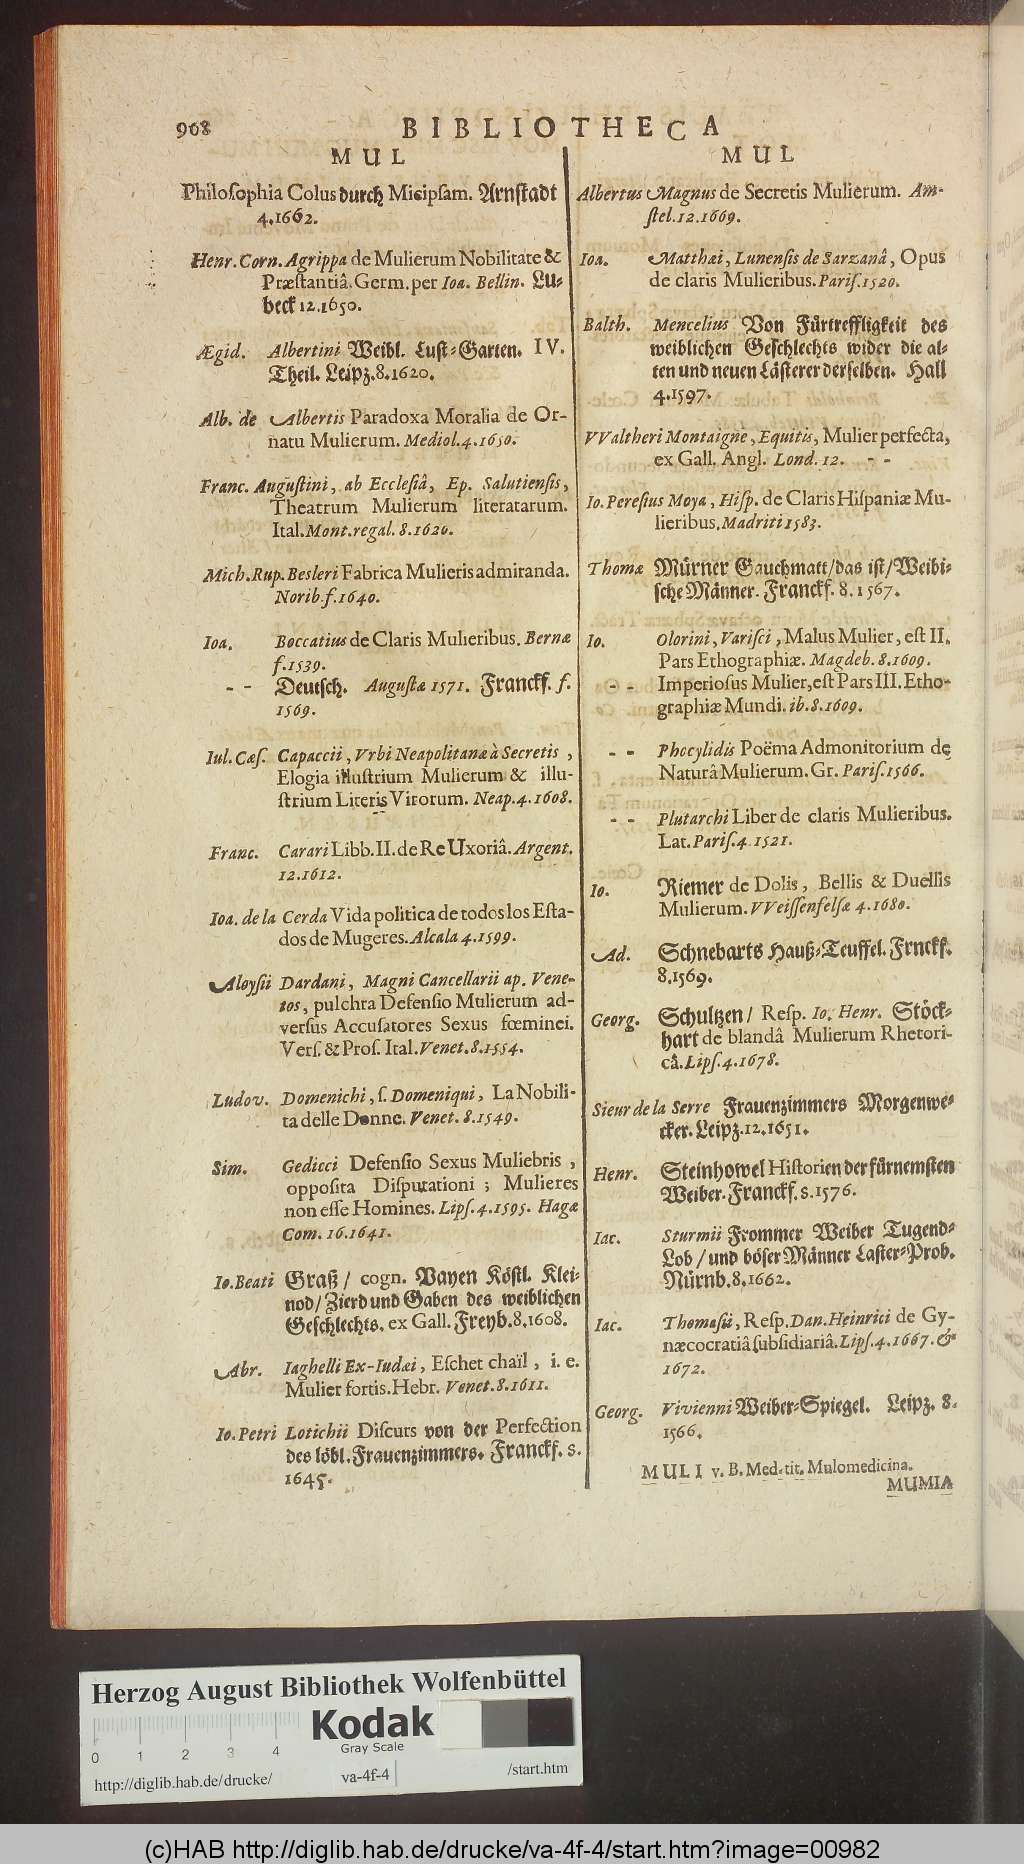 968
BIBLIOTHECA
MUL
Philosophia Colus durch Micipsam. Arnstadt
4.1662.
Henr. Corn. Agrippa de Mulierum Nobilitate &
Præstantiâ. Germ. per Ioa. Bellin. Lu-
beck 12.1650.
Ægid. Albertini Weibl. Lust-Garten. IV.
Theil. Leipz. 8.1620.
Alb. de Albertis Paradoxa Moralia de Or-
natu Mulierum. Mediol. 4.1650.
Franc. Augustini, ab Ecclesiâ, Ep. Salutiensis,
Theatrum Mulierum literatarum.
Ital. Mont. regal. 8.1620.
Mich. Rup. Besleri Fabrica Mulieris admiranda.
Norib. f. 1640.
Ioa. Boccatius de Claris Mulieribus. Bernæ
f. 1539.
- - Deutsch. Augustæ 1571. Franckf. f.
1569.
Iul. Cæs. Capaccii, Vrbi Neapolitanæ à Secretis,
Elogia illustrium Mulierum & illu-
strium Literis Virorum. Neap. 4.1608.
Franc. Carari Libb. II. de Re Uxoriâ. Argent.
12.1612.
Ioa. de la Cerda Vida politica de todos los Esta-
dos de Mugeres. Alcala 4.1599.
Aloysii Dardani, Magni Cancellarii ap. Vene-
tos, pulchra Defensio Mulierum ad-
versus Accusatores Sexus fœminei.
Vers. & Pros. Ital. Venet. 8.1554.
Ludov. Domenichi, s. Domeniqui, La Nobili-
ta delle Donne. Venet. 8.1549.
Sim. Gedicci Defensio Sexus Muliebris,
opposita Disputationi; Mulieres
non esse Homines. Lips. 4.1595. Hagæ
Com. 16.1641.
Io. Beati Graß / cogn. Vayen Köstl. Klei-
nod / Zierd und Gaben des weiblichen
Geschlechts. ex Gall. Freyb. 8.1608.
Abr. Iaghelli Ex-Iudæi, Eschet chaïl, i. e.
Mulier fortis. Hebr. Venet. 8.1611.
Io. Petri Lotichii Discurs von der Perfection
des löbl. Frauenzimmers. Franckf. s.
1645.
MUL
Albertus Magnus de Secretis Mulierum. Am-
stel. 12.1669.
Ioa. Matthæi, Lunensis de Sarzanâ, Opus
de claris Mulieribus. Paris. 1520.
Balth. Mencelius Von Fürtreffligkeit des
weiblichen Geschlechts wider die al-
ten und neuen Lästerer derselben. Hall
4.1597.
VValtheri Montaigne, Equitis, Mulier perfecta,
ex Gall. Angl. Lond. 12. - -
Io. Peresius Moya, Hisp. de Claris Hispaniæ Mu-
lieribus. Madriti 1583.
Thomæ Mürner Gauchmatt / das ist / Weibi-
sche Männer. Franckf. 8.1567.
Io. Olorini, Varisci, Malus Mulier, est II.
Pars Ethographiæ. Magdeb. 8.1609.
- - Imperiosus Mulier, est Pars III. Etho-
graphiæ Mundi. ib. 8.1609.
- - Phocylidis Poëma Admonitorium de
Naturâ Mulierum. Gr. Paris. 1566.
- - Plutarchi Liber de claris Mulieribus.
Lat. Paris. 4 1521.
Io. Riemer de Dolis, Bellis & Duellis
Mulierum. VVeissenfelsæ 4.1680.
Ad. Schnebarts Hauß-Teuffel. Frnckf.
8.1569.
Georg. Schultzen / Resp. Io. Henr. Stöck-
hart de blandâ Mulierum Rhetori-
câ. Lips. 4.1678.
Sieur de la Serre Frauenzimmers Morgenwe-
cker. Leipz. 12.1651.
Henr. Steinhowel Historien der fürnemsten
Weiber. Franckf. s. 1576.
Iac. Sturmii Frommer Weiber Tugend-
Lob / und böser Männer Laster-Prob.
Nürnb. 8.1662.
Iac. Thomasii, Resp. Dan. Heinrici de Gy-
næcocratiâ subsidiariâ. Lips. 4.1667. &
1672.
Georg. Vivienni Weiber-Spiegel. Leipz. 8.
1566.
MULI v. B. Med. tit. Mulomedicina.
MUMIA
Herzog August Bibliothek Wolfenbüttel
Kodak
Gray Scale
0 1 2 3 4
http://diglib.hab.de/drucke/ va-4f-4 /start.htm
(c)HAB http://diglib.hab.de/drucke/va-4f-4/start.htm?image=00982